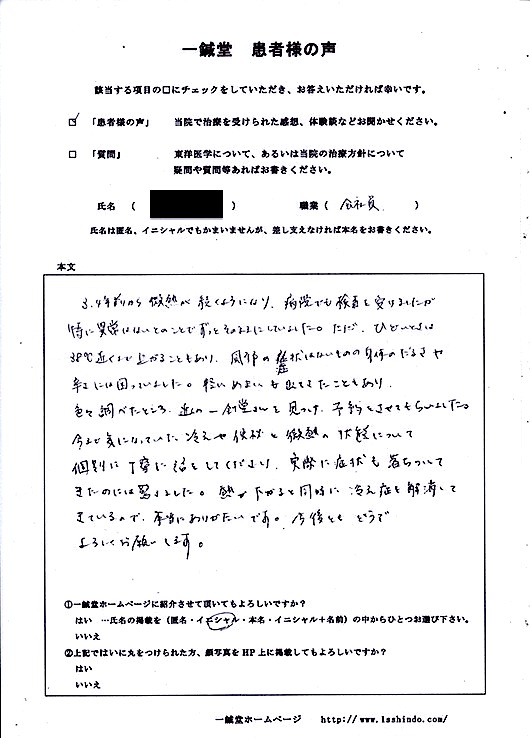 一鍼堂 患者様の声
該当する項目の□にチェックをしていただき、お答えいただければ幸いです。
☑ 「患者様の声」 当院で治療を受けられた感想、体験談などお聞かせください。
□ 「質問」 東洋医学について、あるいは当院の治療方針について
疑問や質問等あればお書きください。
氏名 ( ) 職業 ( 会社員 )
氏名は匿名、イニシャルでもかまいませんが、差し支えなければ本名をお書きください。
本文
3.4年前から 微熱が 続くようになり、病院でも検査を受けましたが
特に異常はないとのことでずっとそのままにしていました。ただ、ひどいときは
38℃近くまで上がることもあり、風邪の症状はないものの身体のだるさや
辛さには困っていました。軽いめまいも出てきたこともあり、
色々調べたところ、近くの一鍼堂さんを見つけ、予約をさせてもらいました。
今まで気になっていた冷えや便秘と微熱の状態について
個別に丁寧に話をしてくださり、実際に症状も落ちついて
きたのには驚きました。熱が下がると同時に冷え症も解消して
きているので、本当にありがたいです。今後とも どうぞ
よろしくお願いします。
①一鍼堂ホームページに紹介させて頂いてもよろしいですか？
はい …氏名の掲載を（匿名・イニシャル・本名・イニシャル＋名前）の中からひとつお選び下さい。
いいえ
②上記ではいに丸をつけられた方、顔写真をHP上に掲載してもよろしいですか？
はい
いいえ
一鍼堂ホームページ http://www.1sshindo.com/